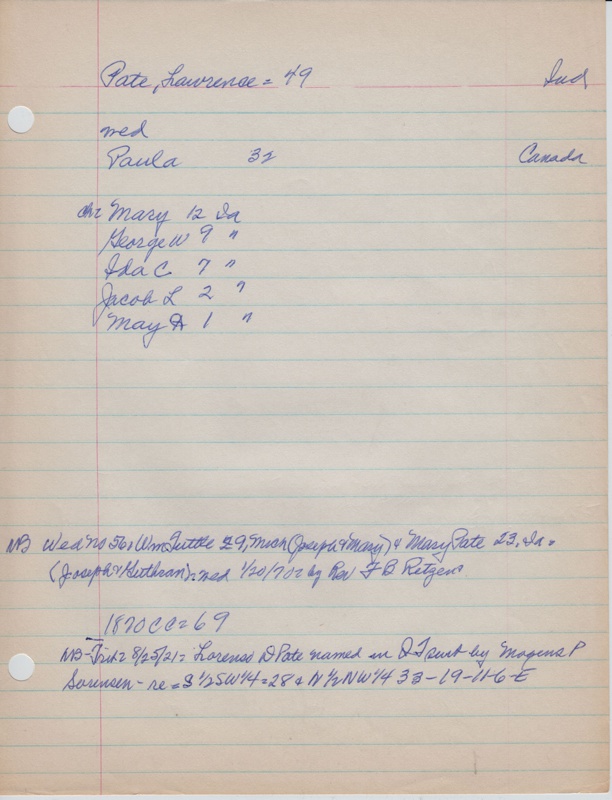 Pate, Lawrence = 49 Ind
wed
Paula 32 Canada
ch= Mary 12 Ia
George W 9 "
Ida C 7 "
Jacob L 2 "
May A 1 "
NB Wed No 56, Wm Tuttle 29, Mich (Joseph & Mary) & Mary Pate 23, Ia =
(Joseph & ) = wed 1/20/70 = by Rev F B Retgers
1870 CC = 69
NB - 8/25/21 = Lorenso D Pate named in Q T suit by Mogens P
Sorensen - re = S 1/2 SW 1/4 = 28 & N 1/2 NW 1/4 33-19-11-6-E